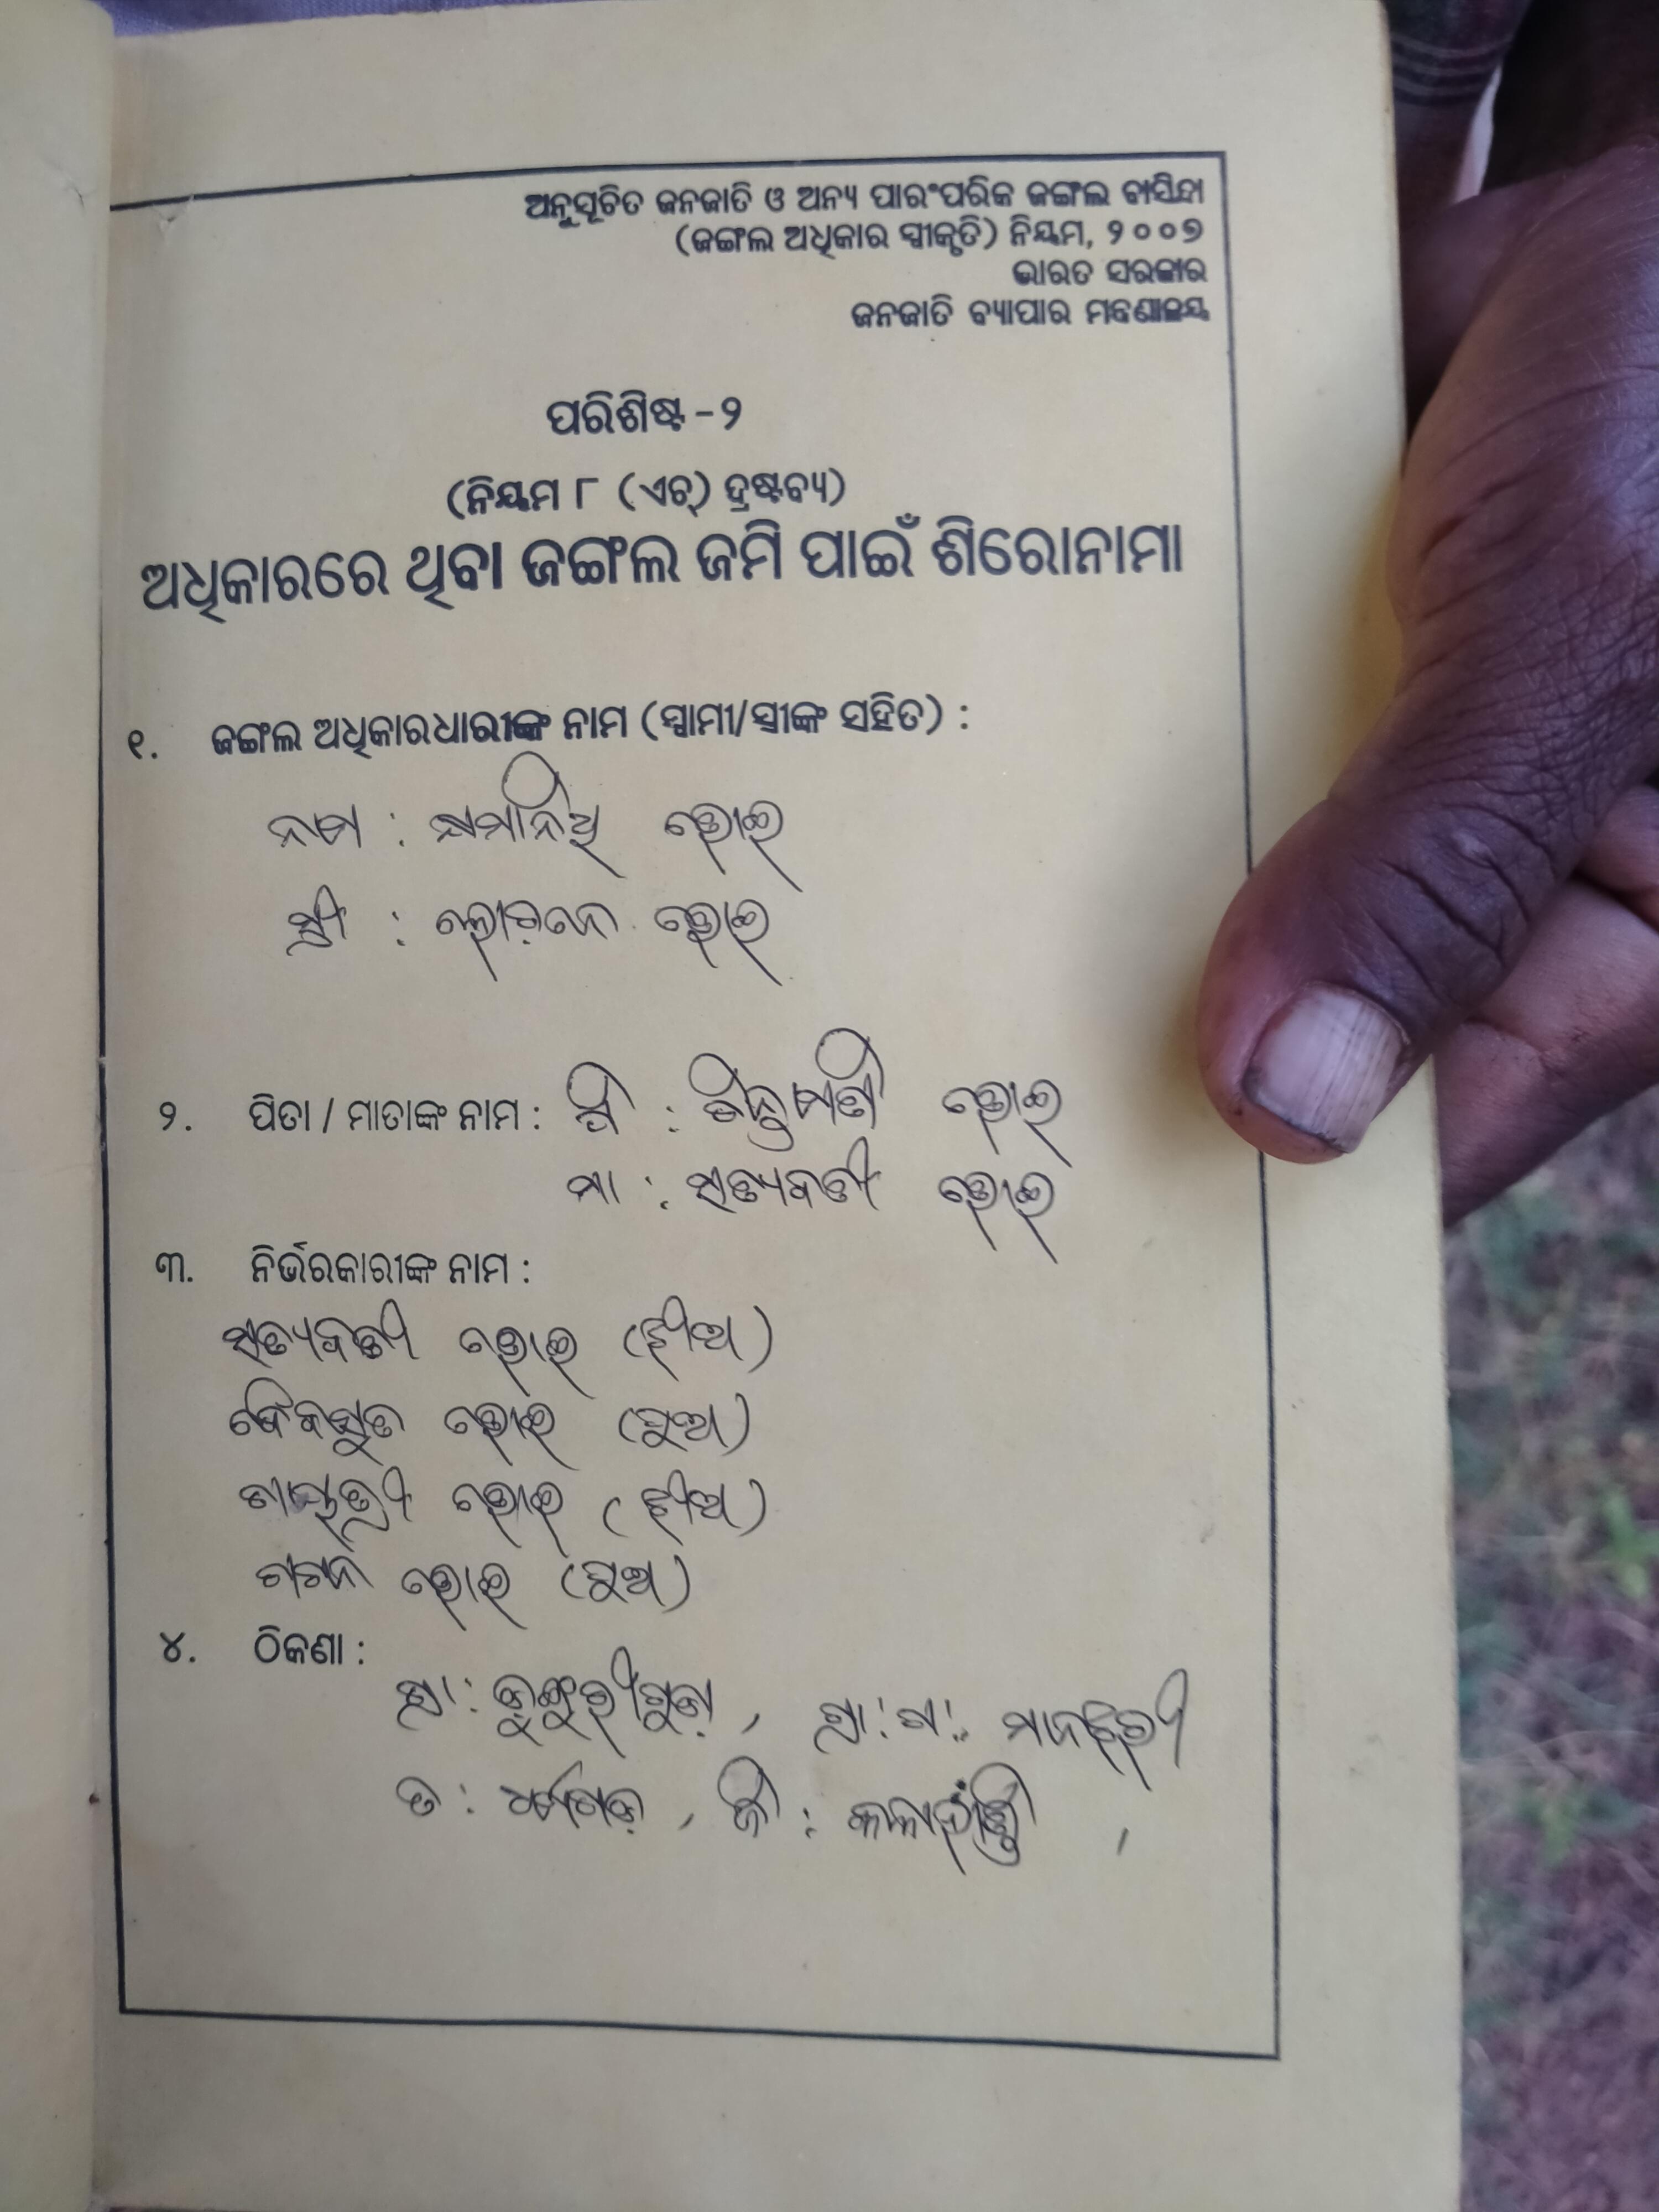 ଅନୁସୂଚିତ ଜନଜାତି ଓ ଅନ୍ୟ ପାରଂପରିକ ଜଙ୍ଗଲ ବାସିନ୍ଦା
(ଜଙ୍ଗଲ ଅଧିକାର ସ୍ୱୀକୃତି) ନିୟମ, ୨୦୦୭
ଭାରତ ସରକାର
ଜନଜାତି ବ୍ୟାପାର ମନ୍ତ୍ରଣାଳୟ
ପରିଶିଷ୍ଟ - ୨
(ନିୟମ ୮ (ଏଚ୍) ଦ୍ରଷ୍ଟବ୍ୟ)
ଅଧିକାରରେ ଥିବା ଜଙ୍ଗଲ ଜମି ପାଇଁ ଶିରୋନାମା
୧. ଜଙ୍ଗଲ ଅଧିକାରଧାରୀଙ୍କ ନାମ (ସ୍ୱାମୀ/ସ୍ତ୍ରୀଙ୍କ ସହିତ) :
ନାମ : କ୍ଷମାନିଧି ଭୋଇ
ସ୍ତ୍ରୀ : ଭୋଇ
୨. ପିତା / ମାତାଙ୍କ ନାମ : ପି : ଚିନ୍ତାମଣି ଭୋଇ
ମା : ସତ୍ୟବତୀ ଭୋଇ
୩. ନିର୍ଭରକାରୀଙ୍କ ନାମ :
ସତ୍ୟବତୀ ଭୋଇ (ଝୀଅ)
ଭୋଇ (ପୁଅ)
ଗାୟତ୍ରୀ ଭୋଇ (ଝୀଅ)
ଗଗନ ଭୋଇ (ପୁଅ)
୪. ଠିକଣା :
ଗ୍ରା : ଗ୍ରା : ପ :
ତ : ଧର୍ମଗଡ଼, ଜି : କଳାହାଣ୍ଡି,